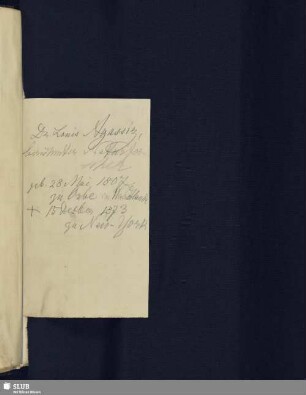 Dr. Louis Agassiz,
berühmter Naturfor-
scher
geb. 28. Mai 1807
zu Orbe in Waadtland
+ 15 Dezbr. 1873
zu New-York
SLUB